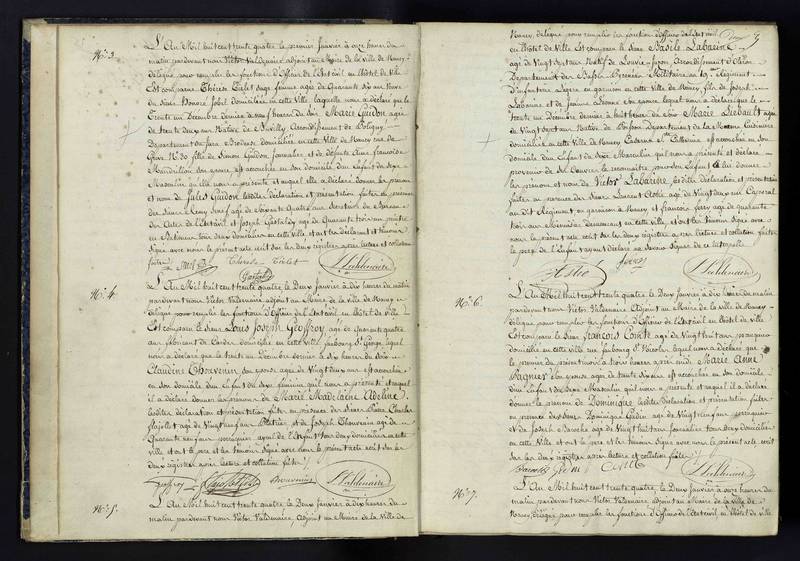 No. 3.
L'An Mil huit cent trente quatre le premier Janvier à onze heures du
matin pardevant nous Victor Valdenaire adjoint au Maire de la ville de Nancy
délégué pour remplir les fonctions d'Officier de l'Etat civil en l'hôtel de Ville
Est comparue Thérèse Tislet sage femme agée de quarante six ans Veuve
du Sieur Honoré Jobel domiciliée en cette Ville laquelle nous a déclaré que le
trente un Décembre dernier à neuf heures du soir Marie Guidon agée
de trente deux ans Native de Arrondissement de Poligny
Département du Jura domiciliée en cette Ville de Nancy rue de
Grève No. 30 fille de Simon Guidon Journalier et de défunte Anne françoise
son épouse, est accouchée en son domicile d'un Enfant du Sexe
Masculin qu'elle nous a présenté et auquel elle a déclaré donner les prénom
et nom de Jules Guidon lesdites déclaration et présentation faites en présence
des Sieurs Remy agé de soixante quatre ans
des Actes de l'Etat civil et Joseph agé de quarante trois ans peintre
en Batiment tous deux domiciliés en cette ville et ont les déclarant et témoins
signé avec nous le présent acte écrit sur les deux registres après lecture et collation
faites
Thérèse Tislet
Valdenaire
No. 4.
L'An Mil huit cent trente quatre le Deux Janvier à dix heures du matin
pardevant nous Victor Valdenaire adjoint au Maire de la Ville de Nancy
délégué pour remplir les fonctions d'Officier de l'Etat civil en l'hôtel de ville
Est comparu le Sieur Louis Joseph Geoffroy agé de quarante quatre
ans fabricant de Cardes domicilié en cette ville faubourg St. George lequel
nous a déclaré que le trente un décembre dernier à dix heures du soir
Claudine Thouvenin son épouse agée de Vingt deux ans est accouchée
en son domicile d'un Enfant du sexe féminin qu'il nous a présenté et auquel
il a déclaré donner les prénoms de Marie Madelaine Adeline,
lesdites déclaration et présentation faites en présence des Sieurs
agé de Vingt neuf ans Platrier, et de Joseph Thouvenin agé de
quarante neuf ans perruquier ayeul de l'Enfant tous deux domiciliés en cette
ville et ont le père et les témoins signé avec nous le présent acte écrit sur les
deux registres après lecture et collation faites
Geoffroy Thouvenin Valdenaire
No. 5.
L'An Mil huit cent trente quatre le Deux Janvier à dix heures du
matin pardevant nous Victor Valdenaire Adjoint au Maire de la Ville de
Nancy, délégué pour remplir les fonctions d'Officier de l'Etat civil
en l'hôtel de Ville Est comparu le Sieur Basile Labarine
agé de Vingt sept ans Natif de Arrondissement d'Oloron
Département des Basses Pyrénées Militaire au 19e Regiment
d'Infanterie Légère en garnison en cette Ville de Nancy, fils de Joseph
Labarine et de Jeanne son épouse lequel nous a déclaré que le
trente un décembre dernier à huit heures du soir Marie agée
de Vingt sept ans Native de Département de la Cuisinière
domiciliée en cette Ville de Nancy Caserne Ste Catherine est accouchée en son
domicile d'un Enfant du Sexe Masculin qu'il nous a présenté et déclaré
provenir de ses œuvres le reconnaître pour son Enfant et lui donner
les prénom et nom de Victor Labarine, lesdites déclaration et présentation
faites en présence des Sieurs Laurent Astié agé de Vingt deux ans Caporal
au dit Regiment, en garnison à Nancy et François ferry agé de quarante
huit ans demeurant en cette ville, et ont les témoins signé avec
nous le présent acte écrit sur les deux registres après lecture et collation faites
le père de l'Enfant ayant déclaré ne savoir signer de ce interpellé
Astié
ferry
Valdenaire
No. 6.
L'An Mil huit cent trente quatre le Deux Janvier à dix heures du matin
pardevant nous Victor Valdenaire Adjoint au Maire de la ville de Nancy
délégué pour remplir les fonctions d'Officier de l'Etat civil en l'hôtel de Ville
Est comparu le Sieur François Comte agé de Vingt huit ans perruquier
domicilié en cette Ville rue faubourg St. Nicolas lequel nous a déclaré que
le premier du présent mois à trois heures après midi Marie Anne
son épouse agée de trente six ans est accouchée en son domicile
d'un Enfant du Sexe Masculin qu'il nous a présenté et auquel il a déclaré
donner le prénom de Dominique, lesdites déclaration et présentation faites
en présence des Sieurs Dominique agé de Vingt neuf ans perruquier
et de Joseph agé de Vingt huit ans tous deux domiciliés
en cette Ville et ont le père et les témoins signé avec nous le présent acte écrit
sur les deux registres après lecture et collation faites
Comte Valdenaire
No. 7.
L'An Mil huit cent trente quatre le Deux Janvier à dix heures du
matin pardevant nous Victor Valdenaire adjoint au Maire de la ville de
Nancy, délégué pour remplir les fonctions d'Officier de l'Etat civil, en l'hôtel de Ville